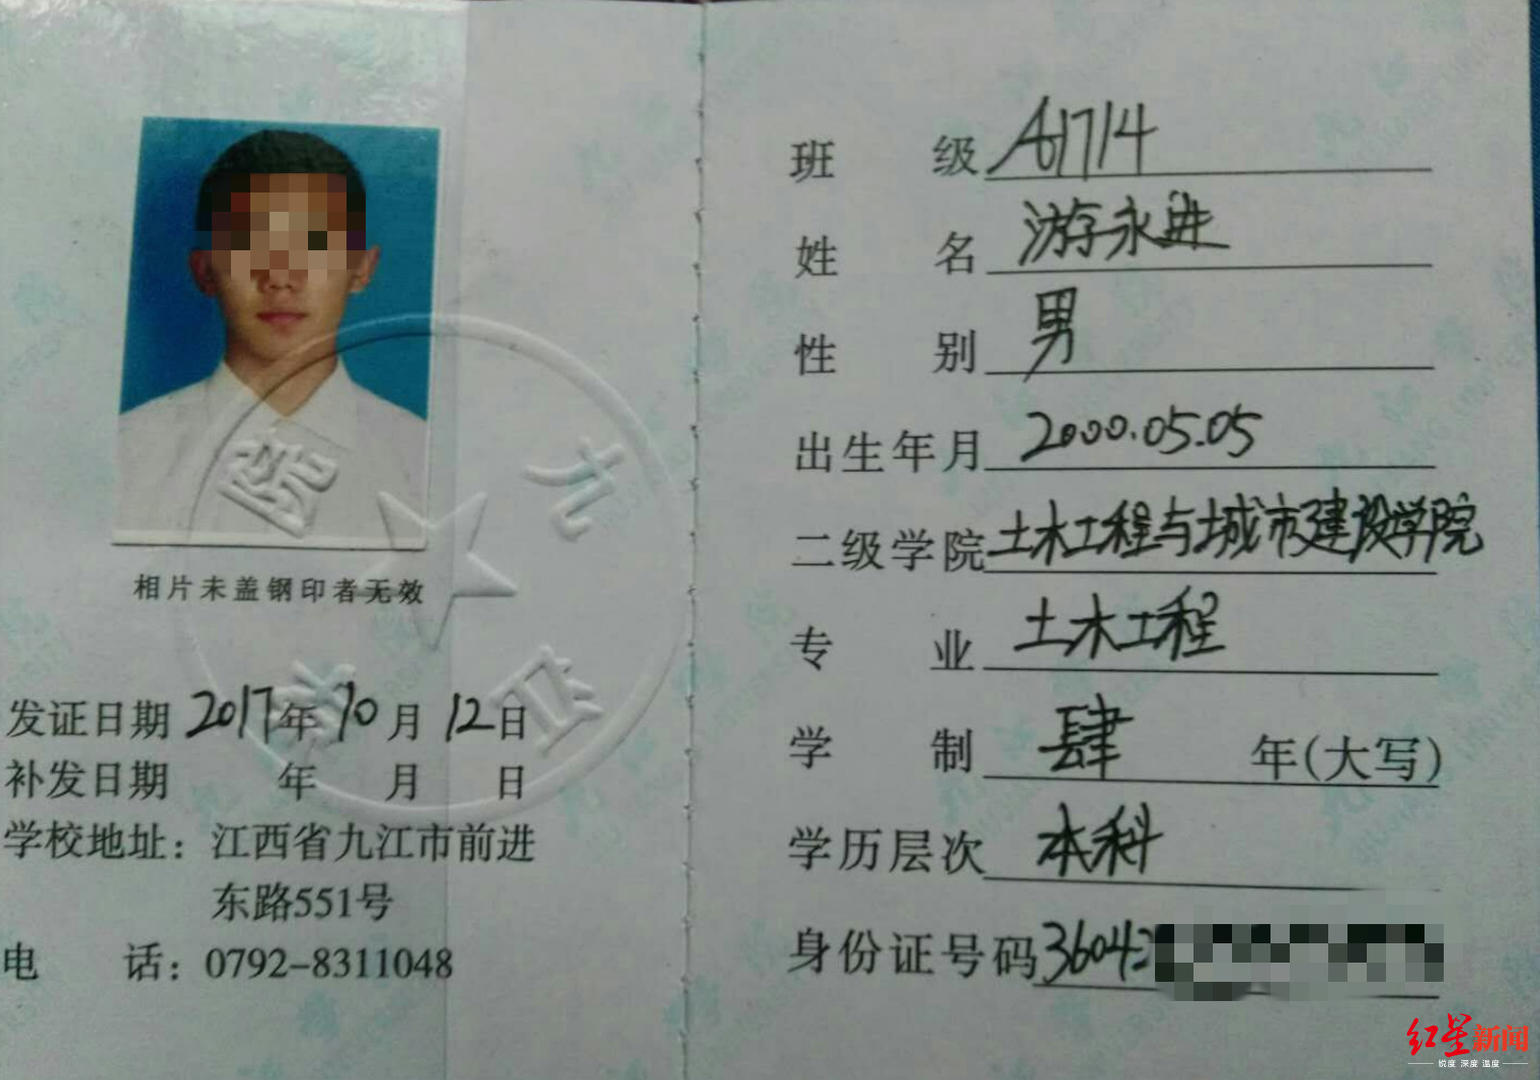 相片未盖钢印者无效
发证日期 2017年10月12日
补发日期 年 月 日
学校地址：江西省九江市前进
东路551号
电 话：0792-8311048
班 级 A1714
姓 名 游永进
性 别 男
出生年月 2000.05.05
二级学院 土木工程与城市建设学院
专 业 土木工程
学 制 肆 年(大写)
学历层次 本科
身份证号码 3604
九江学院
红星新闻
锐度 深度 温度